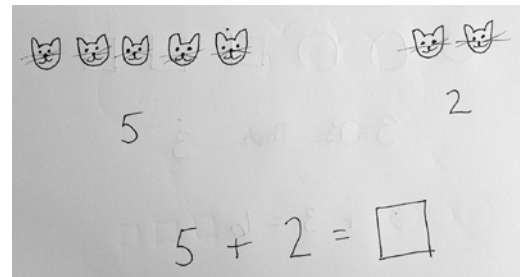 5 2
5 + 2 = □